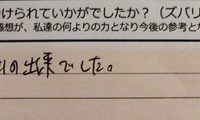 けられていかがでしたか？（ズバリ
感想が、私達の何よりの力となり今後の参考とな
の出来でした。